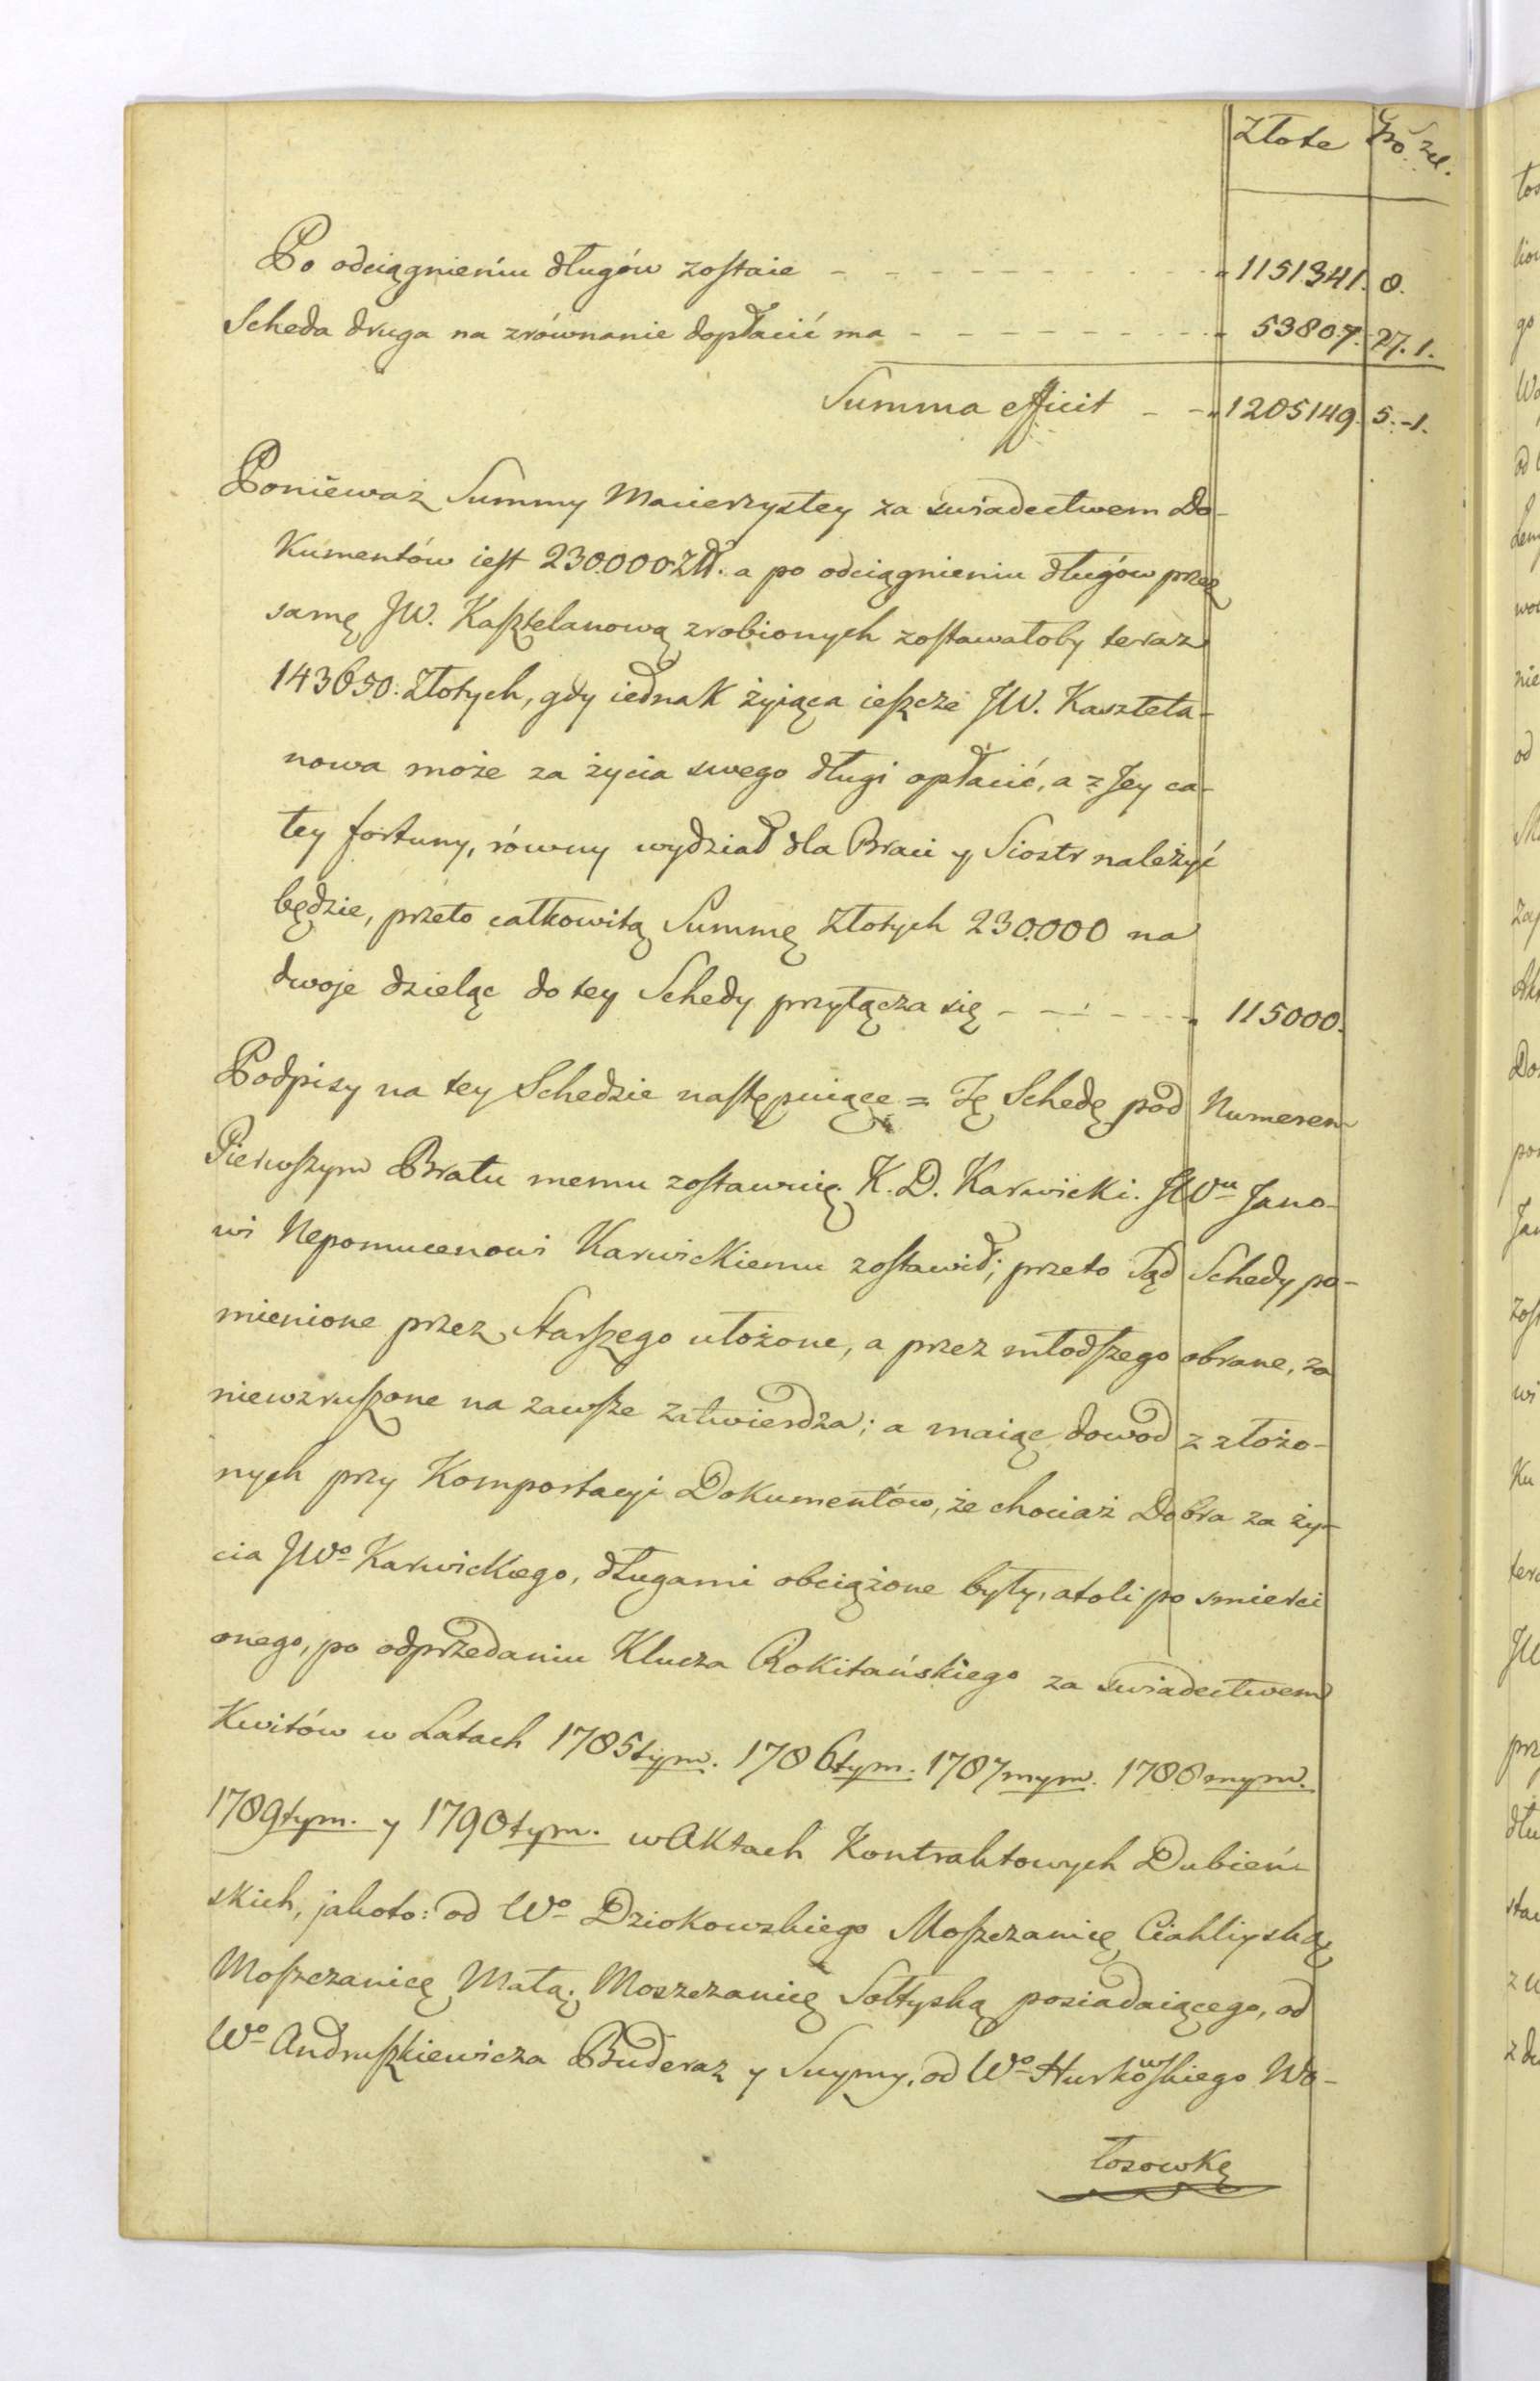 Złote Gro: szel.
Po odciągnieńiu długów zostaie - - - - - - - - - - - 1151341. 8.
Scheda druga na zrównanie dopłacić ma - - - - - - - - - 53807. 27. 1.
Summa efficit - - 1205149. 5.-1.
Ponieważ Summy Macierzystey za swiadectwem Do-
kumentów iest 230.000 Złł. a po odciągnieniu długów przez
samę JW. Kasztelanową zrobionych zostawałoby teraz
143650: Złotych, gdy iednak żyiąca ieszcze JW. Kasztela-
nowa może za życia swego długi opłacić, a z Jey ca-
łey fortuny, równy wydział dla Braci y Siostr należyć
będzie, przeto całkowitą Summę Złotych 230.000 na
dwoje dzieląc do tey Schedy przyłącza się - - - - - - 115000.
Podpisy na tey Schedzie następuiące = Tę Schedę pod Numerem
Pierwszym Bratu memu zostawuię K. D. Karwicki. JWu Jano-
wi Nepomucenowi Karwickiemu zostawił; przeto Sąd Schedy po-
mienione przez Starszego ułożone, a przez młodszego obrane, za
niewzruszone na zawsze zatwierdza; a maiąc dowod z złożo-
nych przy Komportacyi Dokumentów, że chociaż Dobra za ży-
cia JWo Karwickiego, długami obciążone były, atoli po smierci
onego, po odprzedaniu Klucza Rokitańskiego za swiadectwem
Kwitów w Latach 1785tym. 1786tym. 1787mym. 1788mym.
1789tym. y 1790tym. w Aktach Kontraktowych Dubień-
skich, jakoto: od Wo Dziokowskiego Moszczanicę Ciahliyską
Moszczanicę Małą, Moszczanicę Sołtyską posiadaiącego, od
Wo Andruszkiewicza Buderaz y Suymy, od Wo Hurkowskiego Wo-
łosowkę